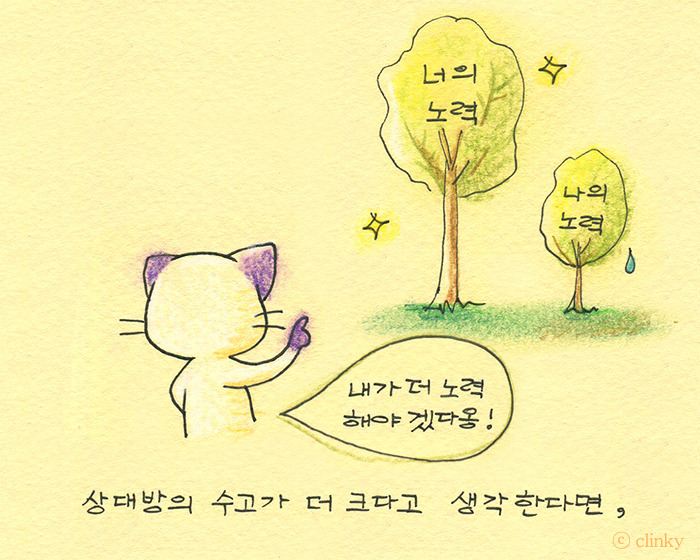 너의
노력
나의
노력
내가 더 노력
해야 겠다옹!
상대방의 수고가 더 크다고 생각한다면,
ⓒ clinky